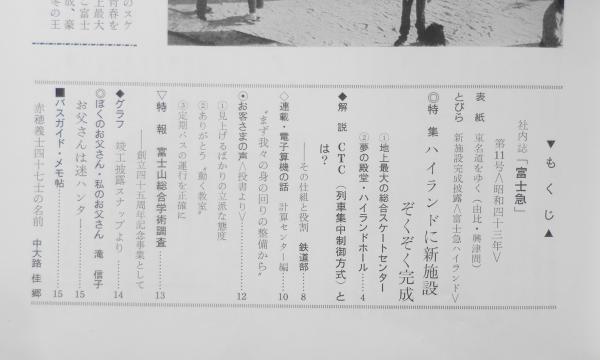 ▼もくじ▲
社内誌「富士急」
第11号〈昭和四十三年〉
表紙 東名道をゆく（由比・興津間）
とびら 新施設完成披露〈富士急ハイランド〉
◎特集 ハイランドに新施設
ぞくぞく完成
①地上最大の総合スケートセンター
②夢の殿堂・ハイランドホール………4
◆解説 CTC（列車集中制御方式）と
は？
――その仕組と役割 鉄道部……8
◇連載・電子算機の話 計算センター編……10
〝まず我々の身の回りの整備から〟
⊙お客さまの声〈投書より〉………12
①見上げるばかりの立派な態度
②ありがとう〝動く教室〟
③定期バスの運行を正確に
▽特報 富士山総合学術調査………13
――創立四十五周年記念事業として
◆グラフ 竣工披露スナップより………14
◎ぼくのお父さん・私のお父さん 滝 信子
お父さんは迷ハンター………15
■バスガイド・メモ帖………15
赤穂義士四十七士の名前 中大路 佳郷
のスケ
上最大
青春を
ご富士
成、豪
冬の王